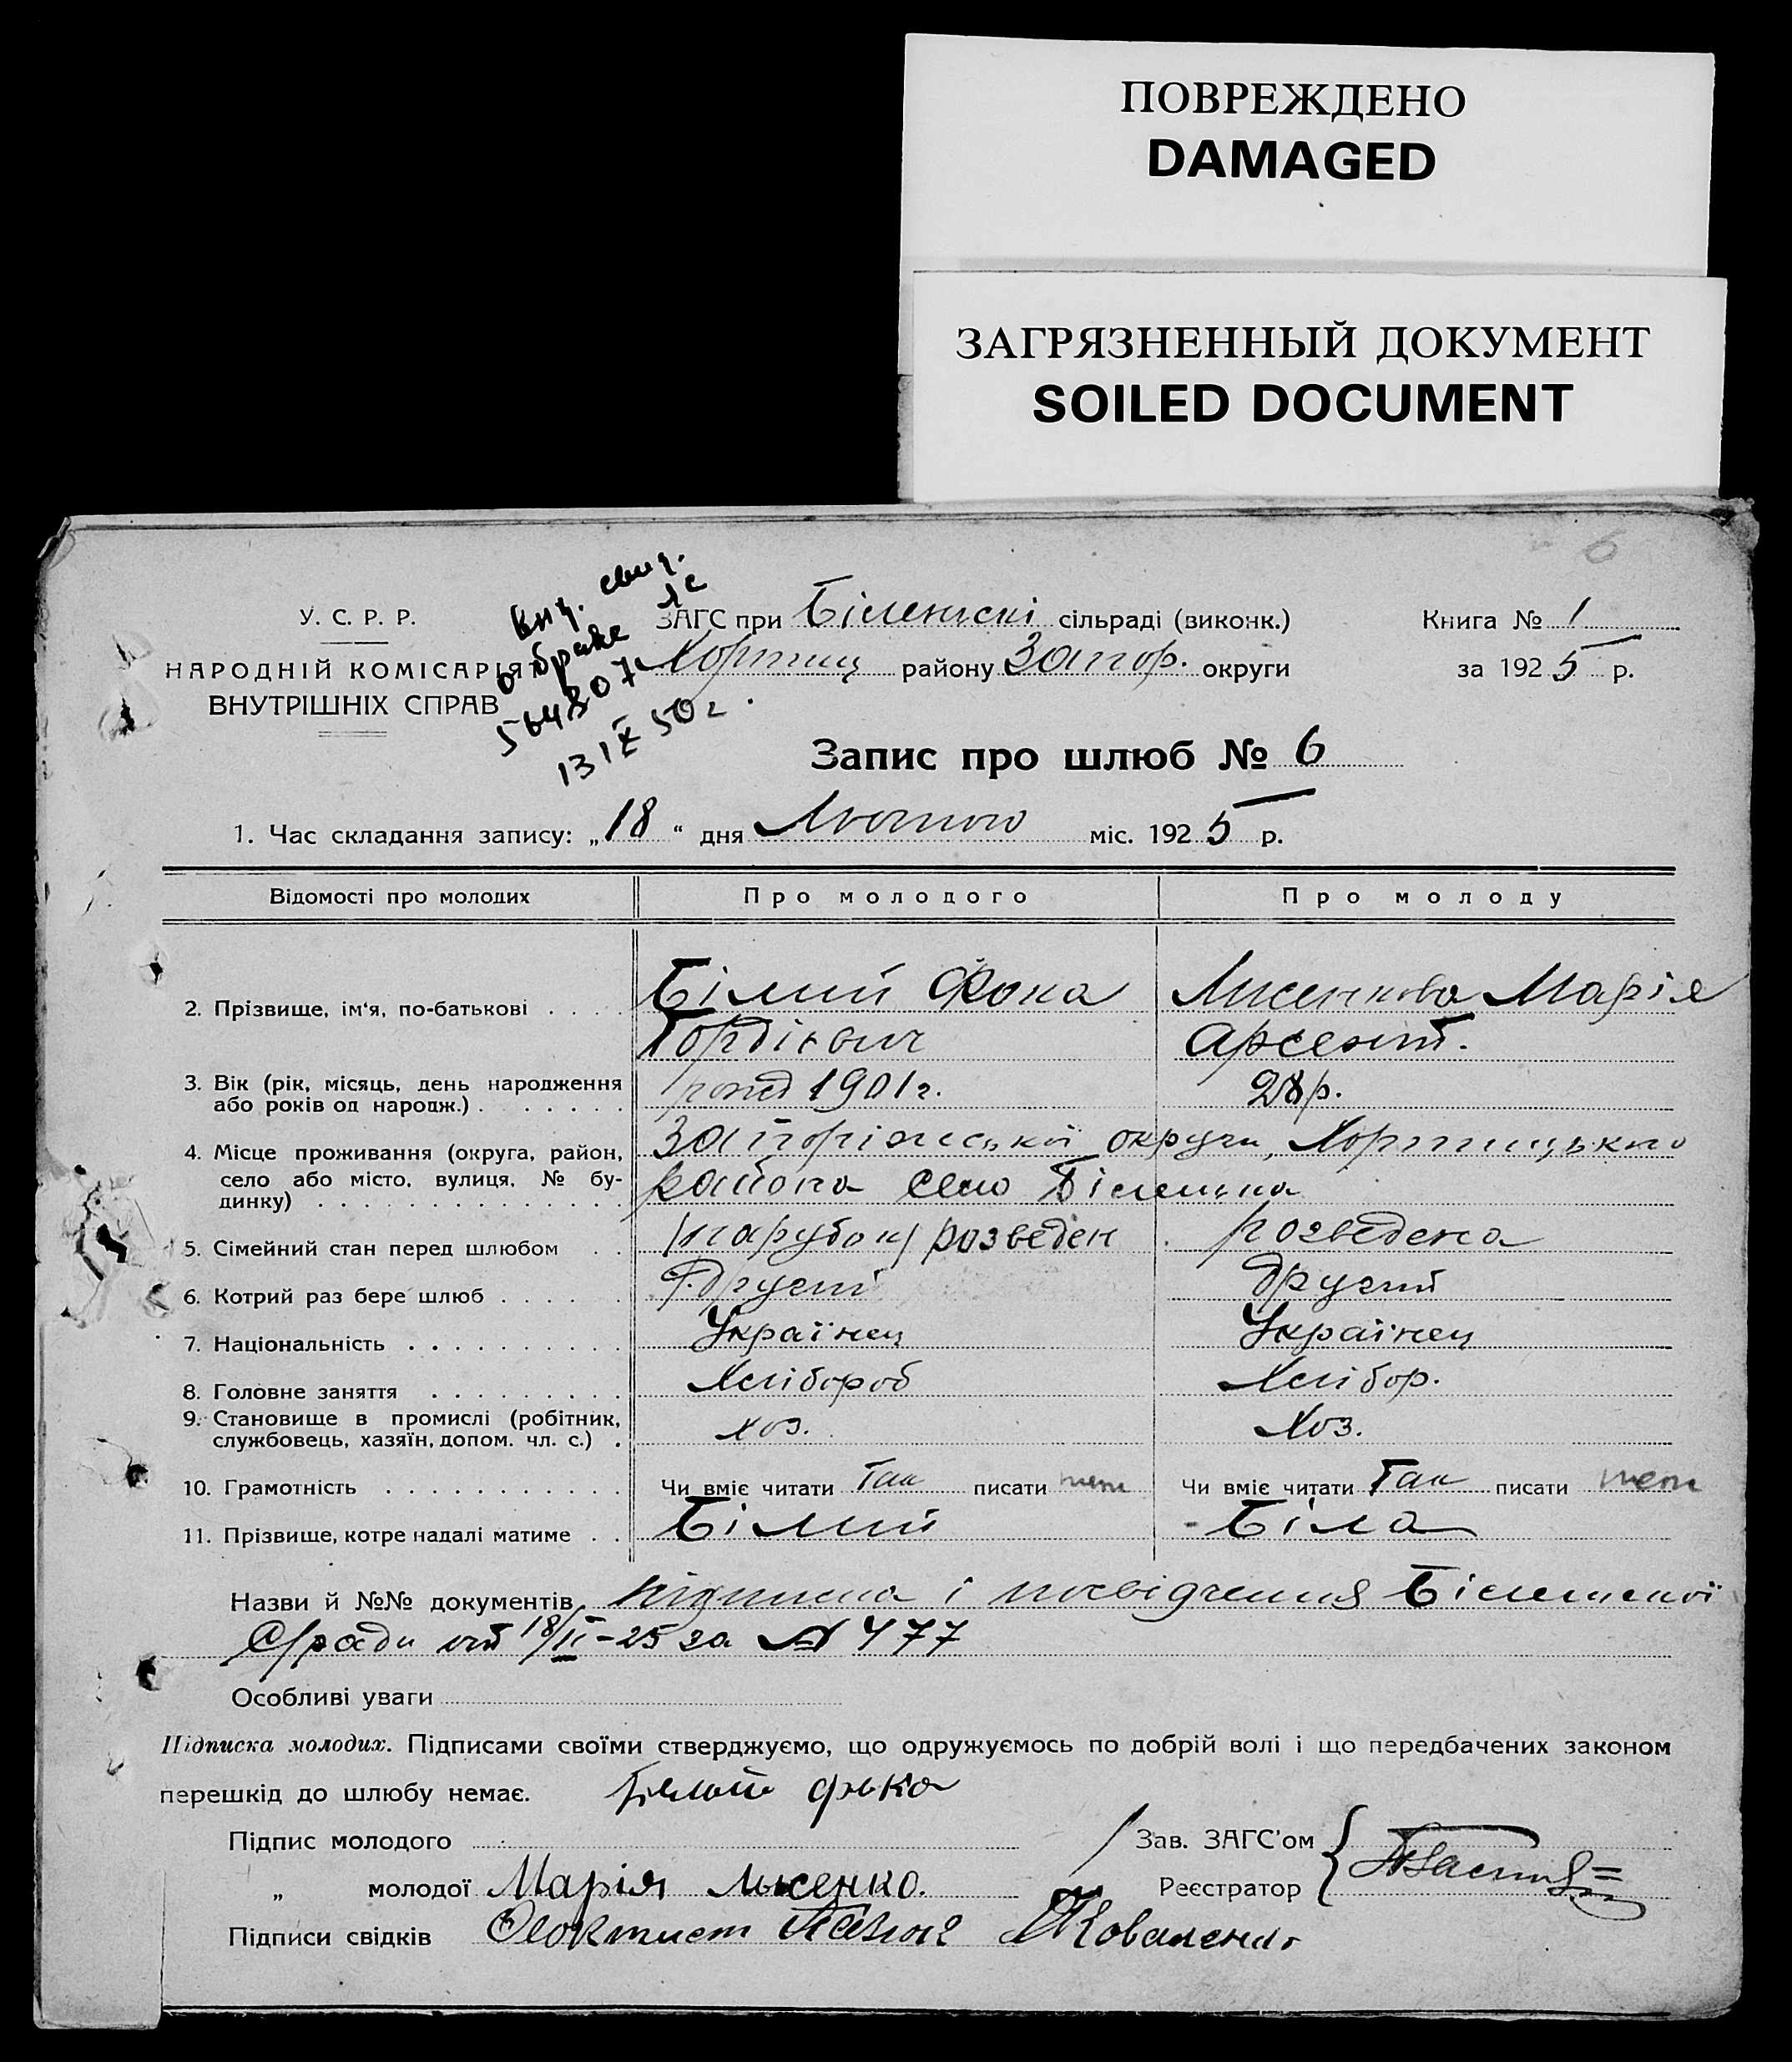 ПОВРЕЖДЕНО
DAMAGED
ЗАГРЯЗНЕННЫЙ ДОКУМЕНТ
SOILED DOCUMENT
6
У. С. Р. Р.
НАРОДНІЙ КОМІСАРІЯТ
ВНУТРІШНІХ СПРАВ
о браке
13 IX 50 г.
ЗАГС при Біленскі сільраді (виконк.)
Хортиц району Запор. округи
Книга № 1
за 1925 р.
Запис про шлюб № 6
1. Час складання запису: „18“ дня Лютого міс. 1925 р.
Відомості про молодих Про молодого Про молоду
2. Прізвище, ім'я, по-батькові . . . . Білий Фока Лисенкова Марія
Гордієвич Арсент.
3. Вік (рік, місяць, день народження
або років од народж.) . . . . . . . 1901 г. 28 р.
4. Місце проживання (округа, район,
село або місто, вулиця, № бу-
динку) . . . . . . . . . . . . . .
Запоріжської округи, Хортицького
района село Біленька
5. Сімейний стан перед шлюбом . . (парубок) розведен розведена
6. Котрий раз бере шлюб . . . . . . другий другий
7. Національність . . . . . . . . . . Українец Українец
8. Головне заняття . . . . . . . . . Хлібороб Хлібор.
9. Становище в промислі (робітник,
службовець, хазяїн, допом. чл. с.) . хоз. Хоз.
10. Грамотність . . . . . . . . . . . Чи вміє читати Так писати Чи вміє читати Так писати
11. Прізвище, котре надалі матиме . . Білий Біла
Назви й №№ документів підписка і посвідчення Біленської
С/ради від 18/II-25 за № 477
Особливі уваги
Підписка молодих. Підписами своїми стверджуємо, що одружуємось по добрій волі і що передбачених законом
перешкід до шлюбу немає. Білый фока
Підпис молодого
Зав. ЗАГС'ом
„ молодої Марія Лысенко.
Реєстратор
Підписи свідків Коваленко